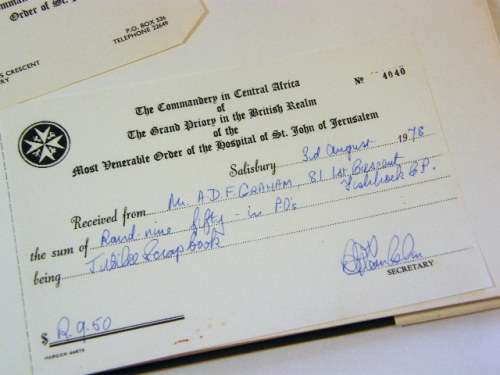 Commandery
Order of St. J
P.O. BOX 336
TELEPHONE 22649
S CRESCENT
RY
The Commandery in Central Africa
of
The Grand Priory in the British Realm
of the
Most Venerable Order of the Hospital of St. John of Jerusalem
Nº 4040
Salisbury 3rd August 1978
Received from Mr A.D.F. GRAHAM, 81. 1st Crescent
Fishhoek C.P.
the sum of Rand nine fifty - in PO's
being Jubilee Scrapbook
SECRETARY
$ R9.50